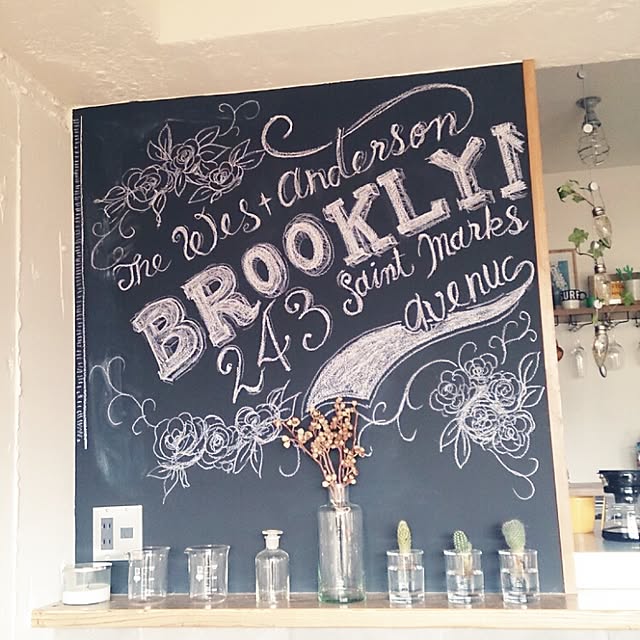 The West Anderson
BROOKLY!
243 Saint Marks
avenue
SURF